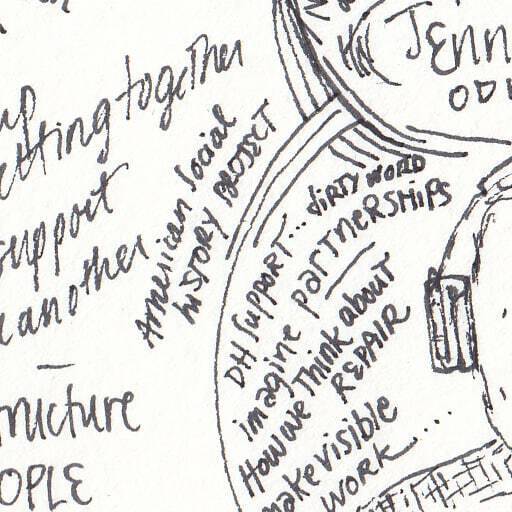 getting together
support
another
American Social
HISTORY PROJECT
JENN
DH Support... DIRTY WORD
imagine partnerships
How we think about
REPAIR
make visible
work.....
ructure
OPLE